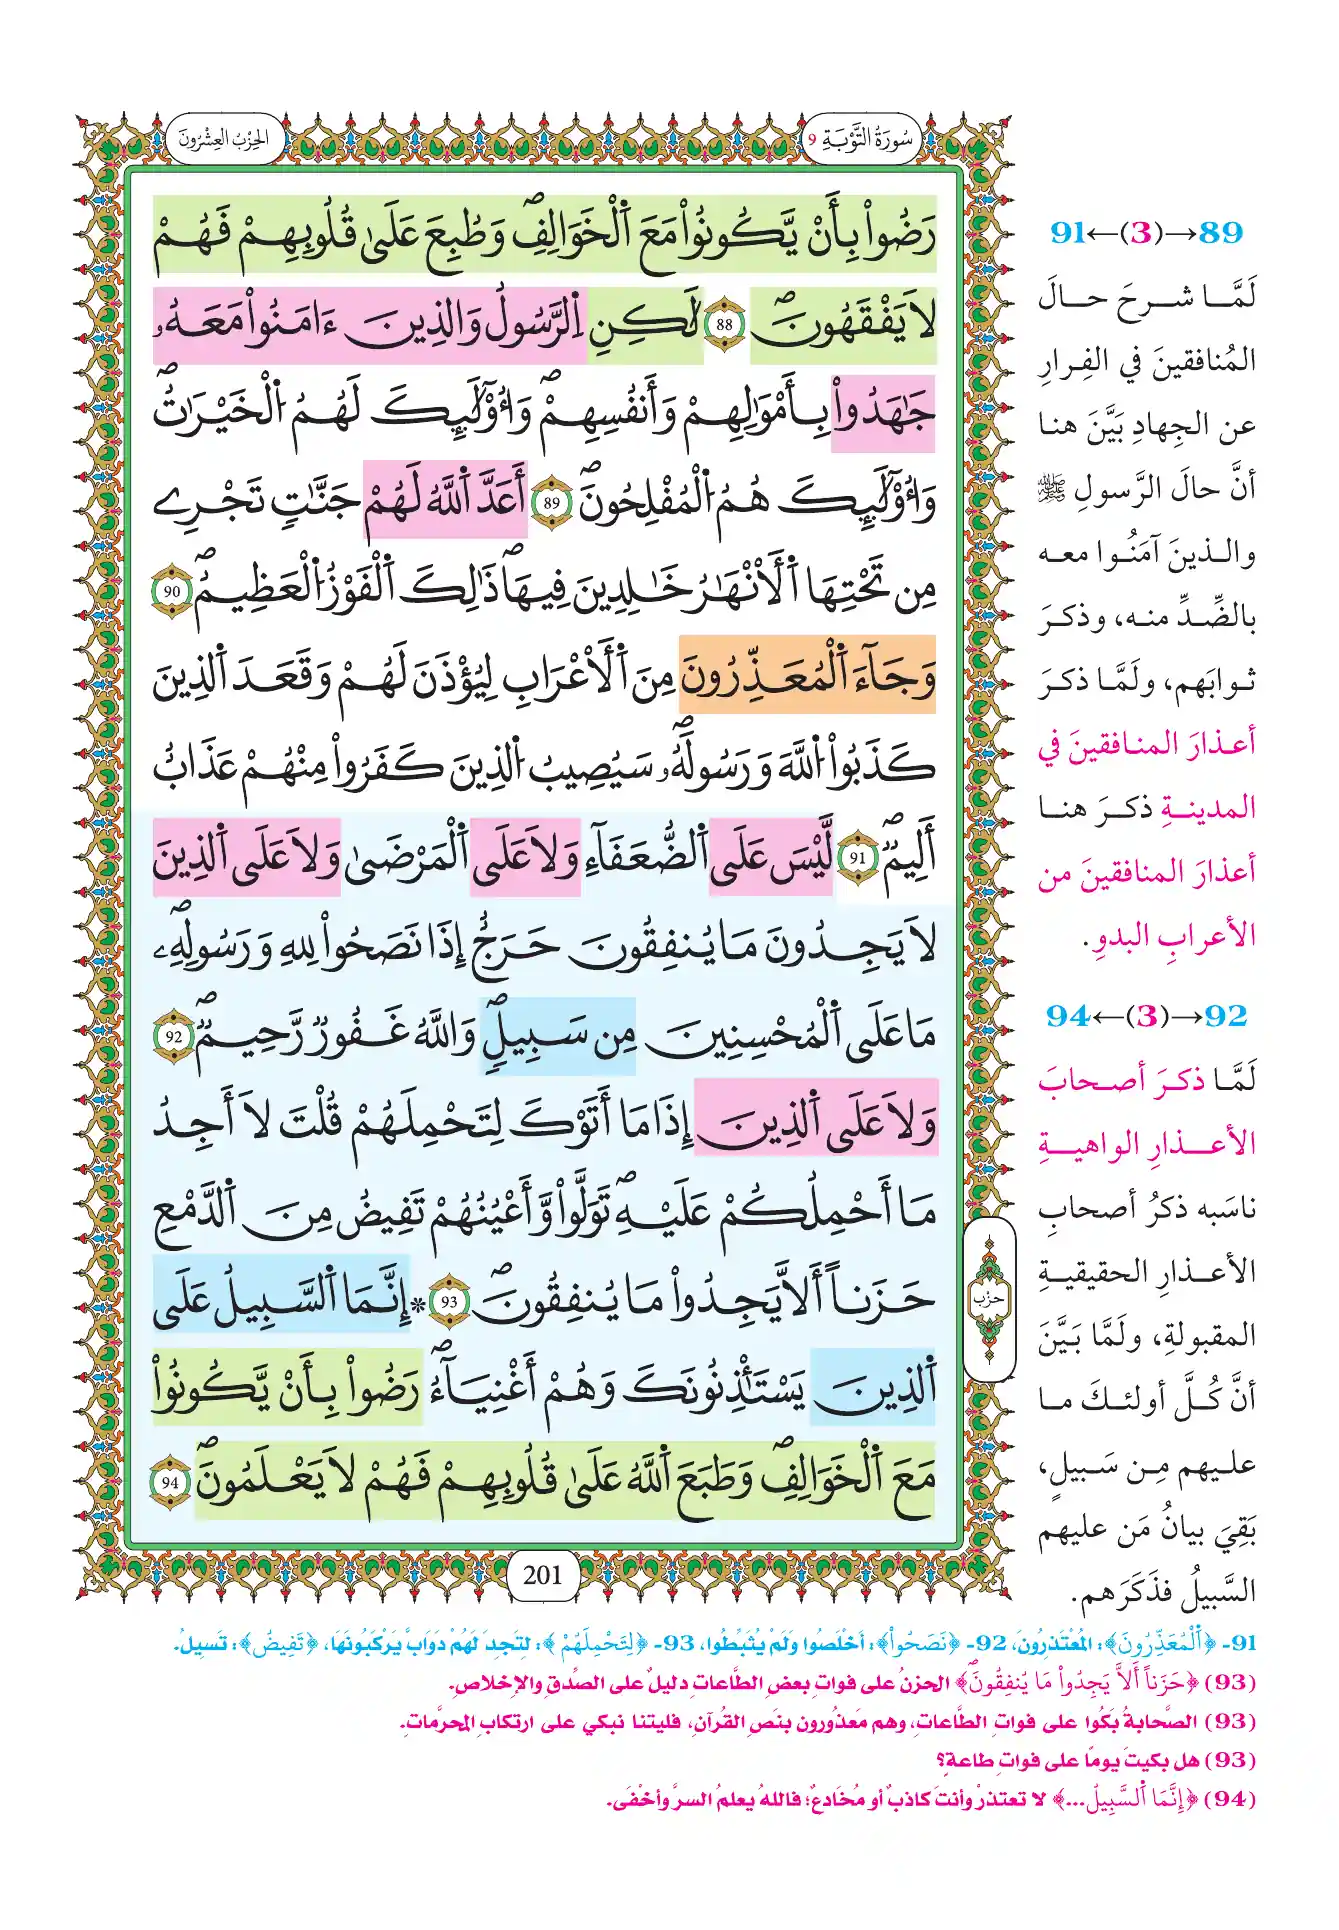 سُورَةُ التَّوْبَةِ 9
الحِزْبُ العِشْرُونَ
رَضُواْ بِأَنْ يَّكُونُواْ مَعَ اَ۬لْخَوَالِفِۖ وَطُبِعَ عَلَىٰ قُلُوبِهِمْ فَهُمْ
لَا يَفْقَهُونَۖ 88 لَٰكِنِ اِ۬لرَّسُولُ وَالذِينَ ءَامَنُواْ مَعَهُۥ
جَٰهَدُواْ بِأَمْوَٰلِهِمْ وَأَنفُسِهِمْۖ وَأُوْلَٰٓئِكَ لَهُمُ اُ۬لْخَيْرَٰتُۖ
وَأُوْلَٰٓئِكَ هُمُ اُ۬لْمُفْلِحُونَۖ 89 أَعَدَّ اَ۬للَّهُ لَهُمْ جَنَّٰتٖ تَجْرِے
مِن تَحْتِهَا اَ۬لْأَنْهَٰرُ خَٰلِدِينَ فِيهَاۖ ذَٰلِكَ اَ۬لْفَوْزُ اُ۬لْعَظِيمُۖ 90
وَجَآءَ اَ۬لْمُعَذِّرُونَ مِنَ اَ۬لْأَعْرَابِ لِيُؤْذَنَ لَهُمْ وَقَعَدَ اَ۬لذِينَ
كَذَبُواْ اُ۬للَّهَ وَرَسُولَهُۥۖ سَيُصِيبُ اُ۬لذِينَ كَفَرُواْ مِنْهُمْ عَذَابٌ
أَلِيمٌۖ 91 لَّيْسَ عَلَى اَ۬لضُّعَفَآءِ وَلَا عَلَى اَ۬لْمَرْضَىٰ وَلَا عَلَى اَ۬لذِينَ
لَا يَجِدُونَ مَا يُنفِقُونَ حَرَجٌ إِذَا نَصَحُواْ لِلهِ وَرَسُولِهِۦۖ
مَا عَلَى اَ۬لْمُحْسِنِينَ مِن سَبِيلٖۖ وَاللَّهُ غَفُورٌ رَّحِيمٌۖ 92
وَلَا عَلَى اَ۬لذِينَ إِذَا مَا أَتَوْكَ لِتَحْمِلَهُمْ قُلْتَ لَا أَجِدُ
مَا أَحْمِلُكُمْ عَلَيْهِۖ تَوَلَّواْ وَّأَعْيُنُهُمْ تَفِيضُ مِنَ اَ۬لدَّمْعِ
حَزَناً أَلَّا يَجِدُواْ مَا يُنفِقُونَۖ 93 * إِنَّمَا اَ۬لسَّبِيلُ عَلَى
اَ۬لذِينَ يَسْتَـْٔذِنُونَكَ وَهُمْ أَغْنِيَآءُۖ رَضُواْ بِأَنْ يَّكُونُواْ
مَعَ اَ۬لْخَوَالِفِۖ وَطَبَعَ اَ۬للَّهُ عَلَىٰ قُلُوبِهِمْ فَهُمْ لَا يَعْلَمُونَۖ 94
حزب
201
89→(3)←91
لَمَّا شرحَ حالَ
المُنافقينَ في الفِرارِ
عن الجِهادِ بَيَّنَ هنا
أنَّ حالَ الرَّسولِ ﷺ
والذينَ آمَنُوا معه
بالضِّدِّ منه، وذكرَ
ثوابَهم، ولَمَّا ذكرَ
أعذارَ المنافقينَ في
المدينةِ ذكرَ هنا
أعذارَ المنافقينَ من
الأعرابِ البدوِ.
92→(3)←94
لَمَّا ذكرَ أصحابَ
الأعذارِ الواهيةِ
ناسَبه ذكرُ أصحابِ
الأعذارِ الحقيقيةِ
المقبولةِ، ولَمَّا بَيَّنَ
أنَّ كُلَّ أولئكَ ما
عليهم مِن سَبيلٍ،
بَقِيَ بيانُ مَن عليهم
السَّبيلُ فذَكَرَهم.
91- ﴿اَ۬لْمُعَذِّرُونَ﴾: المُعْتَذِرُونَ، 92- ﴿نَصَحُواْ﴾: أَخْلَصُوا وَلَمْ يُثَبِّطُوا، 93- ﴿لِتَحْمِلَهُمْ﴾: لِتَجِدَ لَهُمْ دَوَابَّ يَرْكَبُونَهَا، ﴿تَفِيضُ﴾: تَسِيلُ.
(93) ﴿حَزَناً أَلَّا يَجِدُواْ مَا يُنفِقُونَۖ﴾ الحزنُ على فواتِ بعضِ الطَّاعاتِ دليلٌ على الصِّدقِ والإخلاصِ.
(93) الصَّحابةُ بَكَوا على فواتِ الطَّاعاتِ، وهم مَعذُورون بنَصِ القُرآنِ، فليتنا نبكي على ارتكابِ المحرَّمات.
(93) هل بكيتَ يومًا على فواتِ طاعةٍ؟
(94) ﴿إِنَّمَا اَ۬لسَّبِيلُ...﴾ لا تعتذرْ وأنتَ كاذبٌ أو مُخَادعٌ؛ فاللهُ يعلمُ السرَّ وأخْفَى.